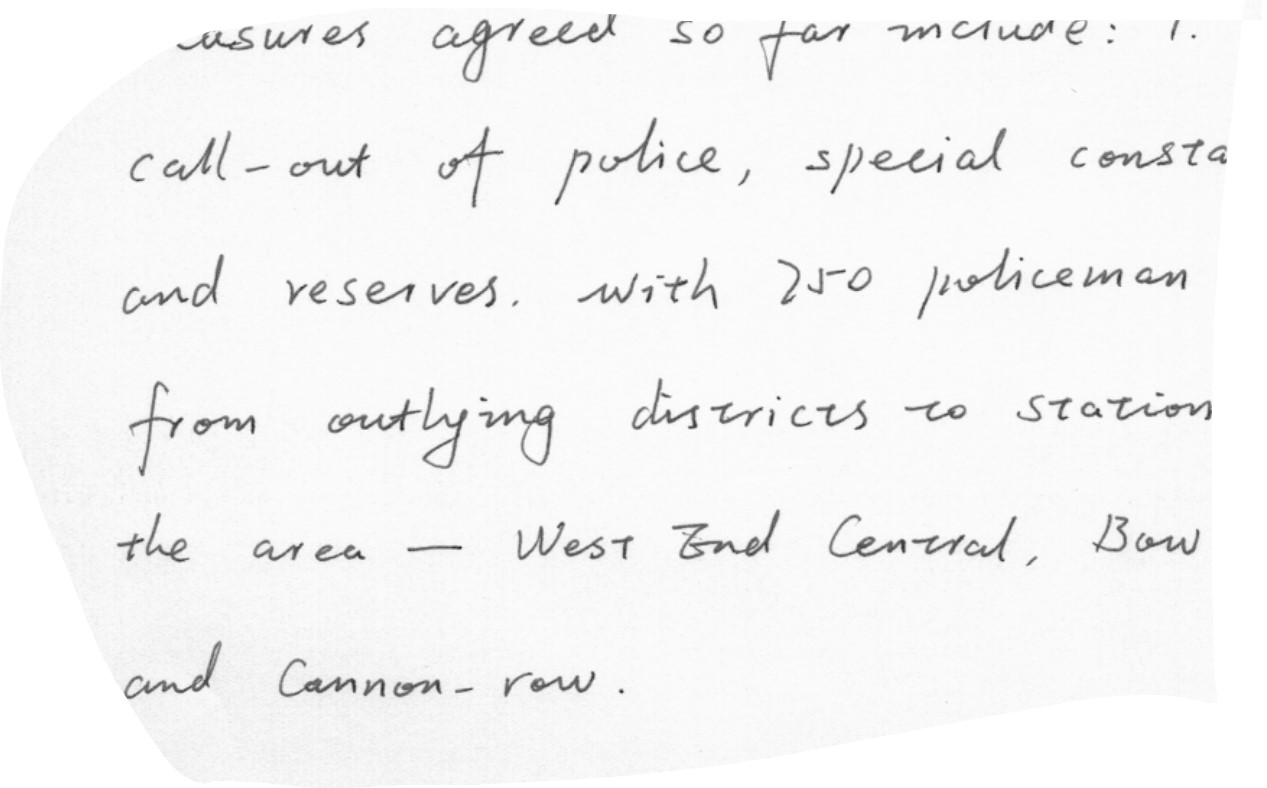 agreed so far include: 1.
call-out of police, special
and reserves. with 250 policeman
from outlying districts to station
the area — West End Central, Bow
and Cannon-row.